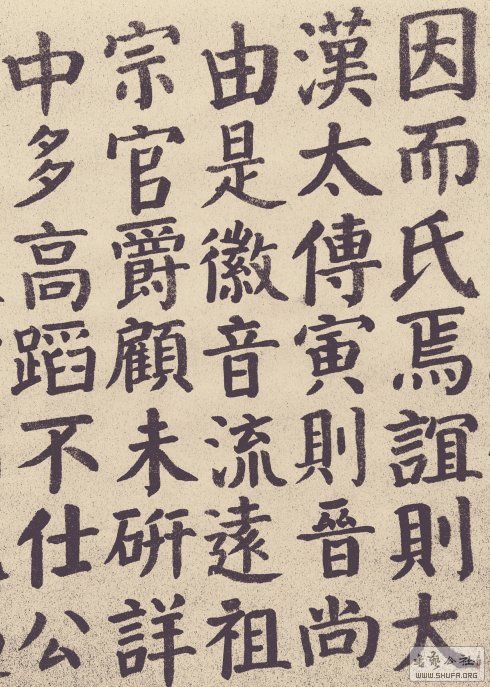 因而氏焉誼則大
漢太傅寅則晉尚
由是徽音流遠祖
宗官爵顧未硏詳
中多高蹈不仕公
書藝公社
WWW.SHUFA.ORG